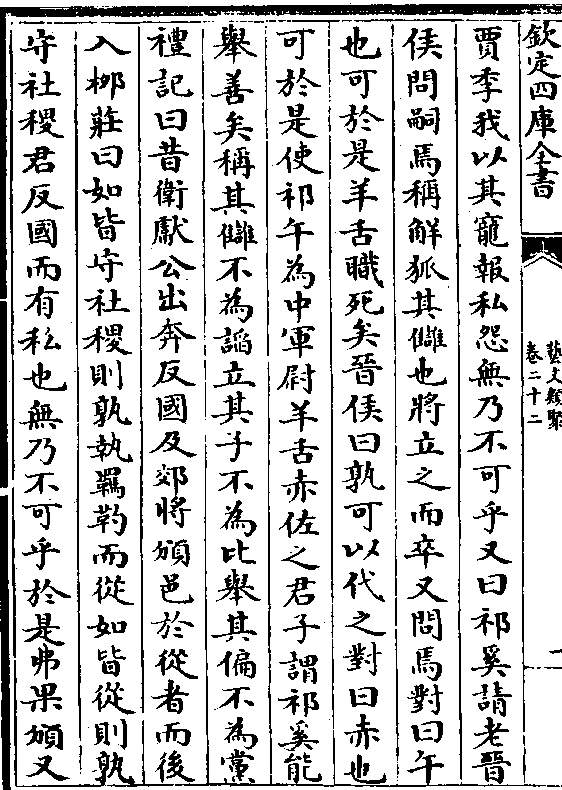 欽定四庫全書
藝文類聚
卷二十二
一
賈季我以其寵報私怨無乃不可乎又曰祁奚請老晉
侯問嗣焉稱觧狐其讎也將立之而卒又問焉對曰午
也可於是羊舌職死矣晉侯曰孰可以代之對曰赤也
可於是使祁午為中軍尉羊舌赤佐之君子謂祁奚能
舉善矣稱其讎不為謟立其子不為比舉其偏不為黨
禮記曰昔衛獻公出奔反國及郊將頒邑於從者而後
入栁莊曰如皆守社稷則孰執羈靮而從如皆從則孰
守社稷君反國而有私也無乃不可乎於是弗果頒又